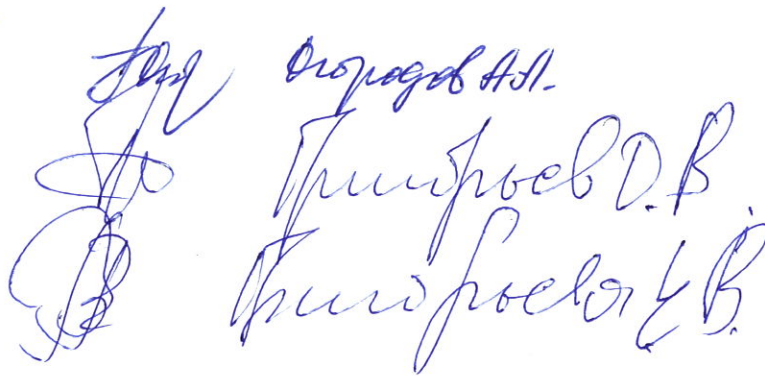 Огородов А.Л.
Григорьев Д.В.
Григорьева Е.В.